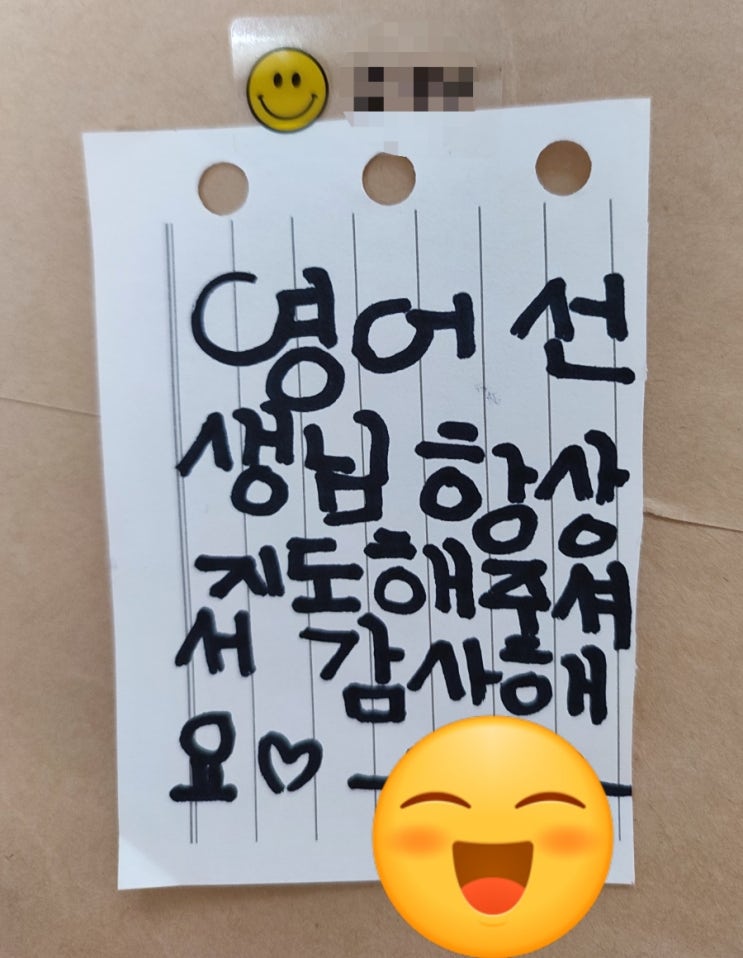 영어 선
생님 항상
지도해주셔
서 감사해
요♡